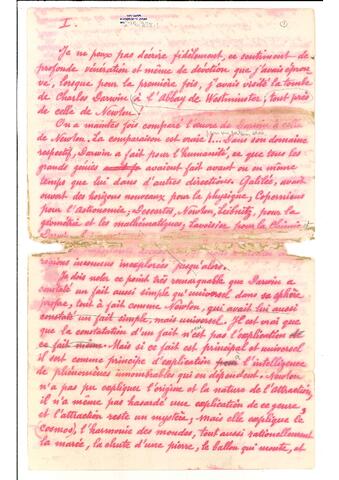 I.
Je ne peux pas décrire fidèlement, ce sentiment de
profonde vénération et même de dévotion que j'avais éprou
vé, lorsque pour la première fois, j'avais visité la tombe
de Charles Darwin à l'Abbaye de Westminster, tout près
de celle de Newton.
On a maintes fois comparé l'œuvre de Darwin à celle
de Newton. La comparaison est vraie. Dans son domaine
respectif, Darwin a fait pour l'humanité, ce que tous les
grands génies avaient fait avant ou en même
temps que lui dans d'autres directions. Galilée, avait
ouvert des horizons nouveaux pour la physique, Copernicus
pour l'Astronomie, Descartes, Newton, Leibnitz, pour la
géométrie et les mathématiques, Lavoisier pour la Chimie et
régions inconnues inexplorées jusqu'alors.
Je dois noter ce point très remarquable que Darwin a
constaté un fait aussi simple qu'universel dans sa sphère
propre, tout à fait comme Newton, qui avait lui aussi
constaté un fait simple, mais universel. Il est vrai que
que la constatation d'un fait n'est pas l'explication de
ce fait même. Mais si ce fait est principal et universel
il est comme principe d'explication l'intelligence
de phénomènes innombrables qui en dépendent. Newton
n'a pas pu expliqué l'origine et la nature de l'attraction,
il n'a même pas hasardé une explication de ce genre,
et l'attraction reste un mystère, mais elle explique le
cosmos, l'harmonie des mondes, tout aussi rationnellement
la marée, la chute d'une pierre, le ballon qui monte, et